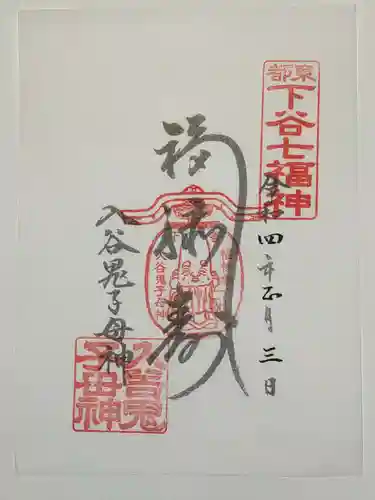 東都
下谷七福神
令和四年正月三日
福禄寿
入谷鬼子母神
入谷鬼子母神
入谷鬼子母神